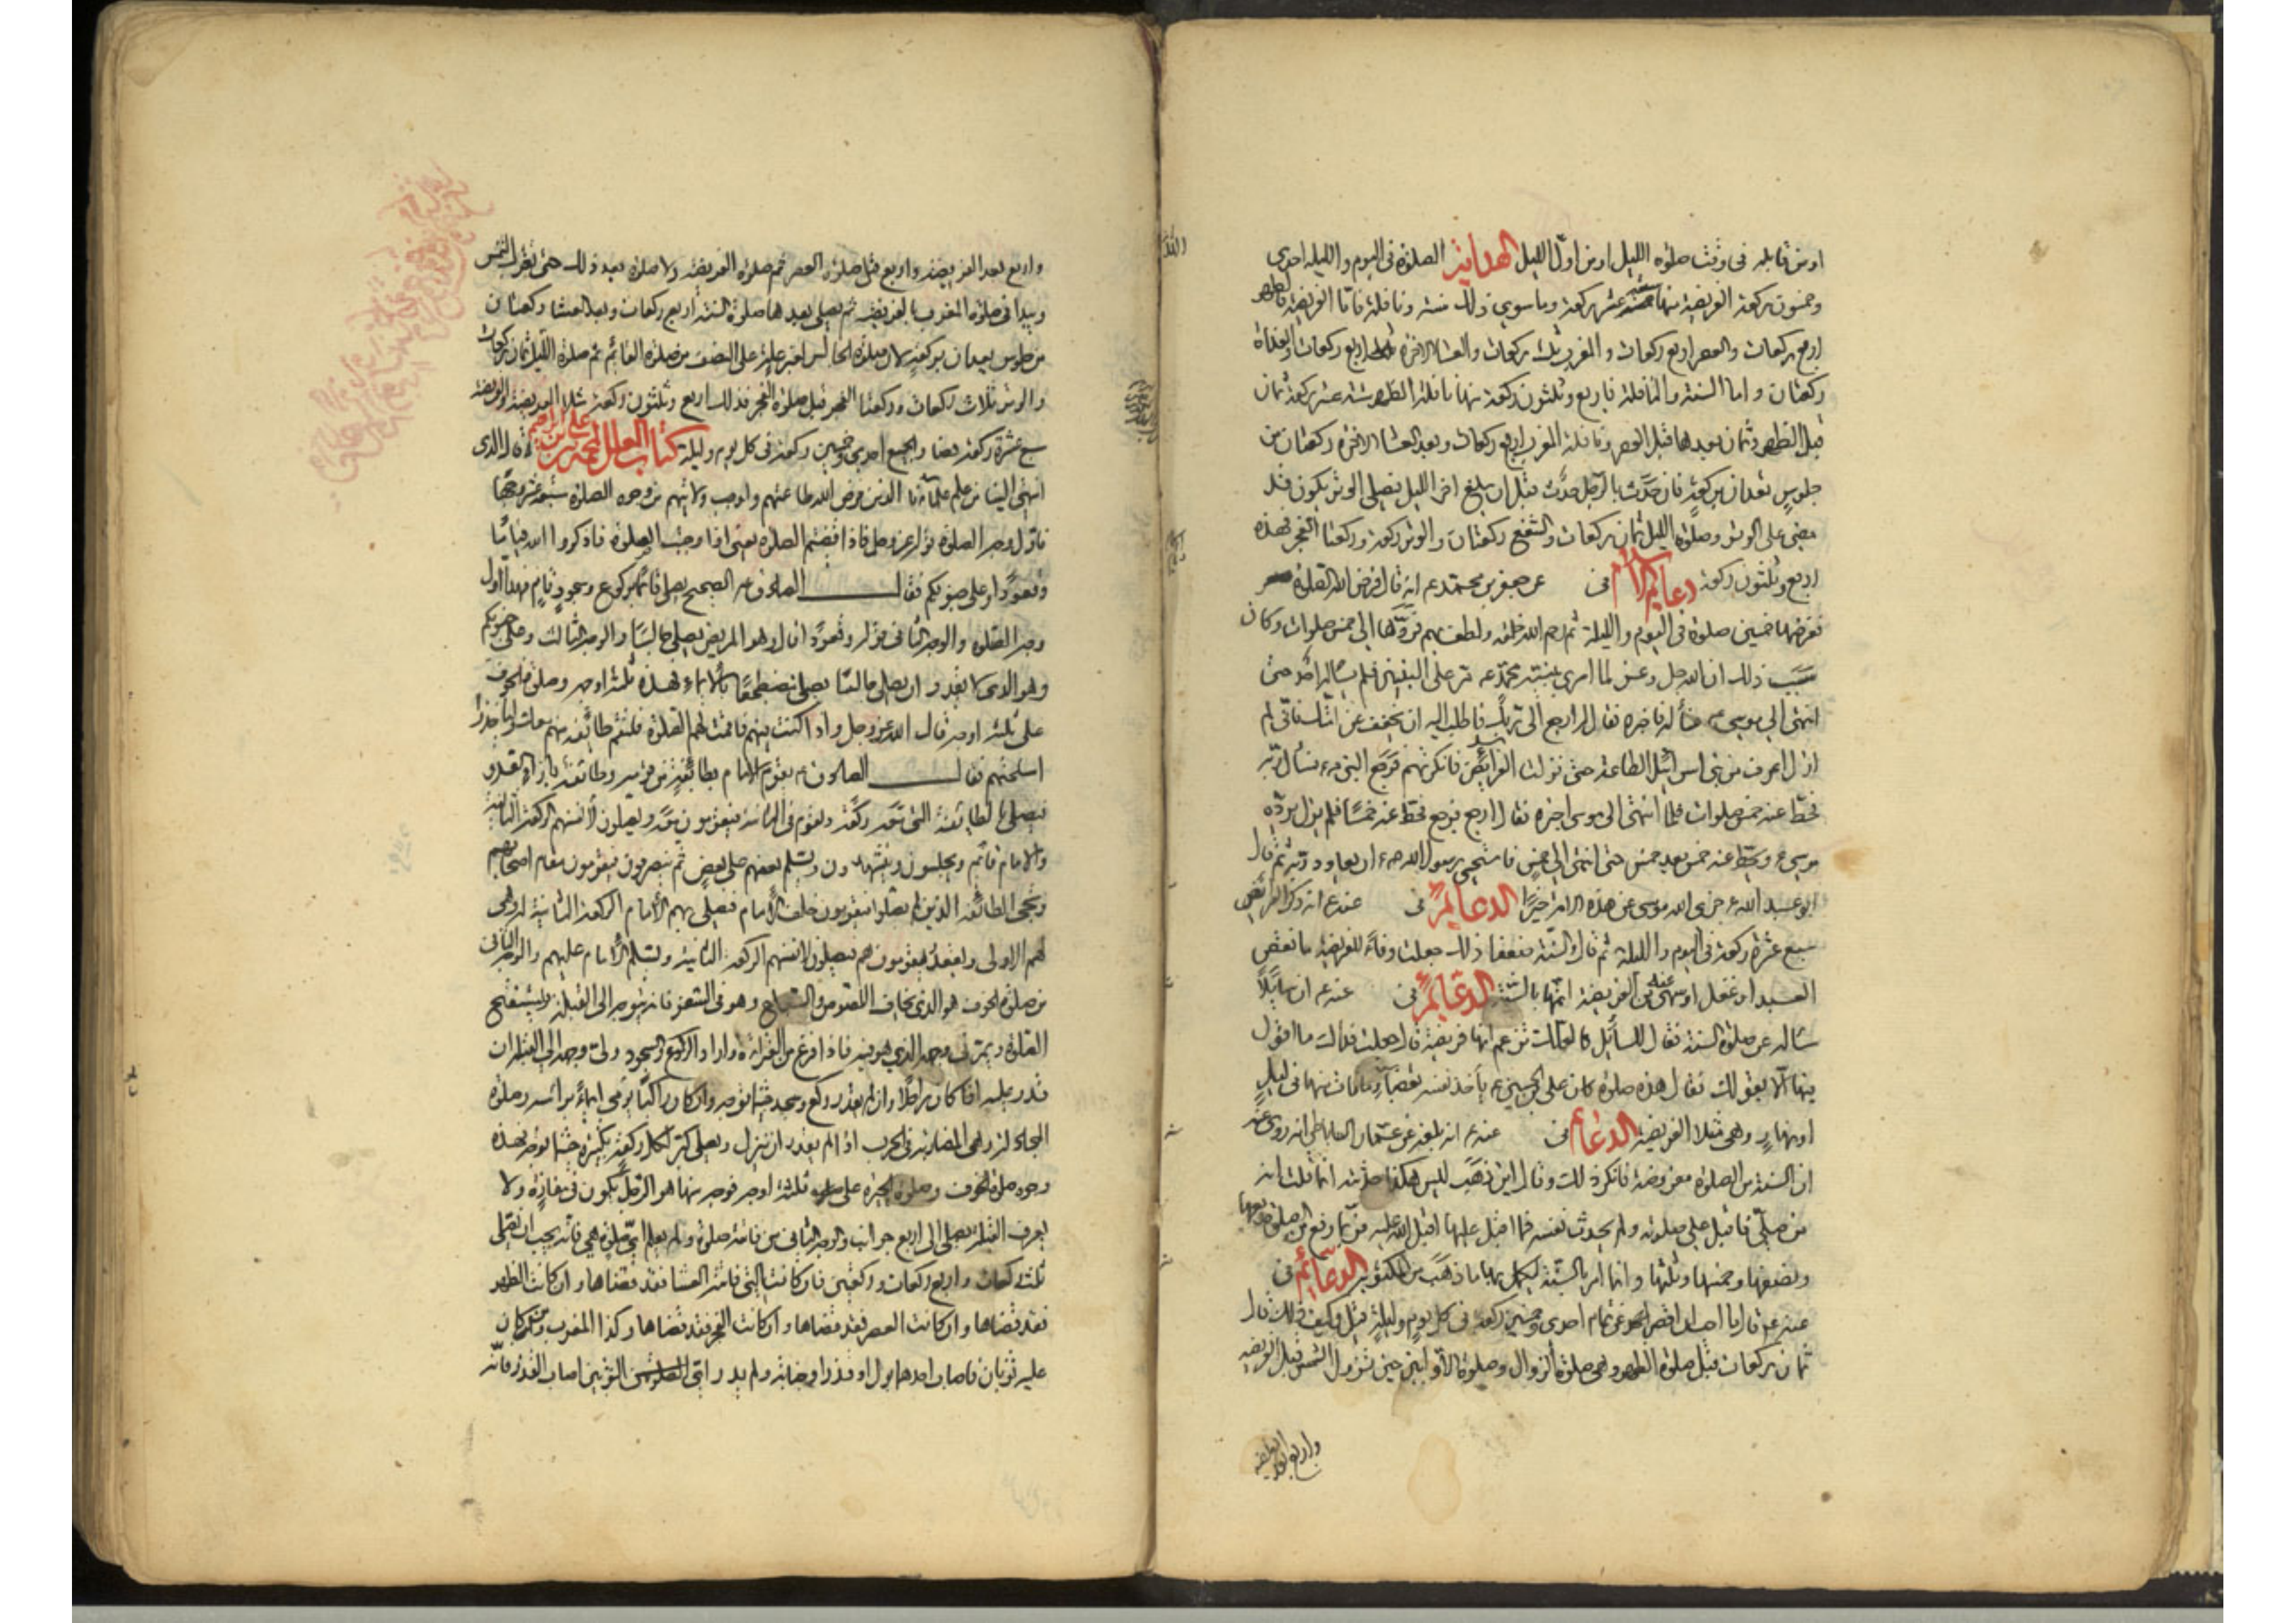 او من قابله فى وقت صلوة الليل او من اول الليل الهداية الصلوة فى اليوم والليلة احدى
وخمسون ركعة الفريضة منها سبعة عشر ركعة وما سوى ذلك سنة ونافلة فاما الفريضة فالظهر
اربع ركعات والعصر اربع ركعات والمغرب ثلث ركعات والعشاء الاخرة اربع ركعات والغداة
ركعتان واما السنة والنافلة فاربع وثلثون ركعة منها نافلة الظهر ستة عشر ركعة ثمان
قبل الظهر وثمان بعدها قبل العصر ونافلة المغرب اربع ركعات وبعد العشاء الاخرة ركعتان من
جلوس تعدان بركعة فان حدث بالرجل حدث قبل ان يبلغ اخر الليل فيصلى الوتر يكون قد
مضى على الوتر وصلوة الليل ثمان ركعات والشفع ركعتان والوتر ركعة وركعتا الفجر فهذه
اربع وثلثون ركعة دعايم الاسلام عن جعفر بن محمد ع انه قال فرض الله الصلوة
ففرضها خمسين صلوة فى اليوم والليلة ثم رحم الله خلقه ولطف بهم فردها الى خمس صلوات وكان
سبب ذلك ان الله جل وعز لما اسرى بنبيه محمد مر على النبيين فلم يساله احد حتى
انتهى الى موسى ع فسأله فاخبره فقال ارجع الى ربك فاطلب اليه ان يخفف عن امتك فانى لم
ازل اعرف من بنى اسرائيل الطاعة حتى نزلت الفرائض فانكرتهم فرجع النبى ص فسأل ربه
فحط عنه خمس صلوات فلما انتهى الى موسى اخبره فقال ارجع فرجع فحط عنه خمسا فلم يزل يرده
موسى ع ويحط عنه خمس بعد خمس حتى انتهى الى خمس فاستحيى رسول الله ص ان يعاود ربه ثم قال
ابو عبد الله ع جزى الله موسى عن هذه الامة خيرا الدعايم عنه ع انه ذكر الفرائض
سبع عشرة ركعة فى اليوم والليلة ثم قال والسنة ضعفا ذلك جعلت وفاء للفريضة ما نقص
العبد او غفل او سهى عنه من الفريضة اتمها بالسنة الدعايم عنه ع ان سائلا
سأله عن صلوة السنة فقال للسائل لعلك تزعم انها فريضة قال جعلت فداك ما اقول
فيها الا بقولك فقال هذه صلوة كان على بن الحسين ع يأخذ نفسه بقضاء ما فات منها فى ليل
او نهار وهى مثلا الفريضة الدعايم عنه ع انه بلغه عن عمار الساباطى انه روى عنه
ان السنة من الصلوة مفروضة فانكر ذلك وقال اين ذهب ليس هكذا حدثته انما قلت انه
من صلى فاقبل على صلوته ولم يحدث نفسه فيها اقبل الله عليه ما اقبل عليها فربما رفع من الصلوة ربعها
ونصفها وخمسها وثلثها وانما امر بالسنة ليكمل بها ما ذهب من المكتوبة الدعايم
عنه ع قال ما احب ان اقصر عن تمام احدى وخمسين ركعة فى كل يوم وليلة قيل وكيف ذلك قال
ثمان ركعات قبل صلوة الظهر وهى صلوة الزوال وصلوة الاوابين حين تزول الشمس قبل الفريضة
واربع بعد الفريضة
واربع بعد الفريضة واربع قبل صلوة العصر ثم صلوة الفريضة ولا صلوة بعد ذلك حتى تغرب الشمس
ويبدا فى صلوة المغرب بالفريضة ثم يصلى بعدها صلوة السنة اربع ركعات وبعد العشا ركعتان
من جلوس تعدان بركعة لان صلوة الجالس لغير علة على النصف من صلوة القائم ثم صلوة الليل ثمان ركعات
والوتر ثلاث ركعات وركعتا الفجر قبل صلوة الفجر فذلك اربع وثلثون ركعة مثلا الفريضة والفريضة
سبع عشرة ركعة فصار الجميع احدى وخمسين ركعة فى كل يوم وليلة كتاب العلل لمحمد بن على بن ابراهيم قال الذى
انتهى الينا من علم علمائنا الذين فرض الله طاعتهم واوجب ولايتهم من وجوه الصلوة سبعة عشر وجها
فاول وجه الصلوة قوله عز وجل فاذا قضيتم الصلوة يعنى اذا وجبت الصلوة فاذكروا الله قياما
وقعودا وعلى جنوبكم فقال الصادق ع الصحيح يصلى قائما بركوع وسجود تام فهذا اول
وجه الصلوة والوجه الثانى قوله وقعودا قال هو المريض يصلى جالسا والوجه الثالث وعلى جنوبكم
وهو الذى لا يقدر ان يصلى جالسا يصلى مضطجعا بالايماء فهذه ثلثة اوجه وصلوة الخوف
على ثلثة اوجه قال الله عز وجل واذا كنت فيهم فاقمت لهم الصلوة فلتقم طائفة منهم معك وليأخذوا
اسلحتهم فقال الصادق ع يقوم الامام بطائفة من قومه وطائفة بازاء العدو
فيصلى بالطائفة التى معه ركعة ويقوم فى الثانية فيقومون معه ويصلون لانفسهم الركعة الثانية
والامام قائم ويجلسون ويتشهدون ويسلم بعضهم على بعض ثم ينصرفون فيقومون مقام اصحابهم
وتجئ الطائفة الذين لم يصلوا فيقومون خلف الامام فيصلى بهم الامام الركعة الثانية له وهى
لهم الاولى ويقعد فيقومون هم فيصلون لانفسهم الركعة الثانية ويسلم الامام عليهم والوجه الثانى
من صلوة الخوف هو الذى يخاف اللصوص والسباع وهو فى السفر فانه يتوجه الى القبلة ويستفتح
الصلوة ويمر فى وجهه الذى هو فيه فاذا فرغ من القراءة واراد الركوع والسجود ولى وجهه الى القبلة ان
قدر عليه اذا كان راجلا وان لم يقدر ركع وسجد حيثما توجه وان كان راكبا يومى ايماء براسه وصلوة
المجادلة وهى المضاربة فى الحرب اذا لم يقدر ان ينزل ويصلى كبر لكل ركعة تكبيرة حيثما توجه فهذه
وجوه صلوة الخوف وصلوة الحيرة على ثلثة اوجه فوجه منها هو الرجل يكون فى مفازة ولا
يعرف القبلة يصلى الى اربع جوانب والوجه الثانى من فاتته صلوة ولم يعلم اى صلوة هى فانه يجب ان يصلى
ثلث ركعات واربع ركعات وركعتين فان كانت التى فاتته العشا فقد قضاها وان كانت الظهر
فقد قضاها وان كانت العصر فقد قضاها وان كانت الفجر فقد قضاها وكذا المغرب ومن كان
عليه ثوبان فاصاب احدهما بول او قذر او جنابة ولم يدر اى الثوبين اصاب القذر فانه